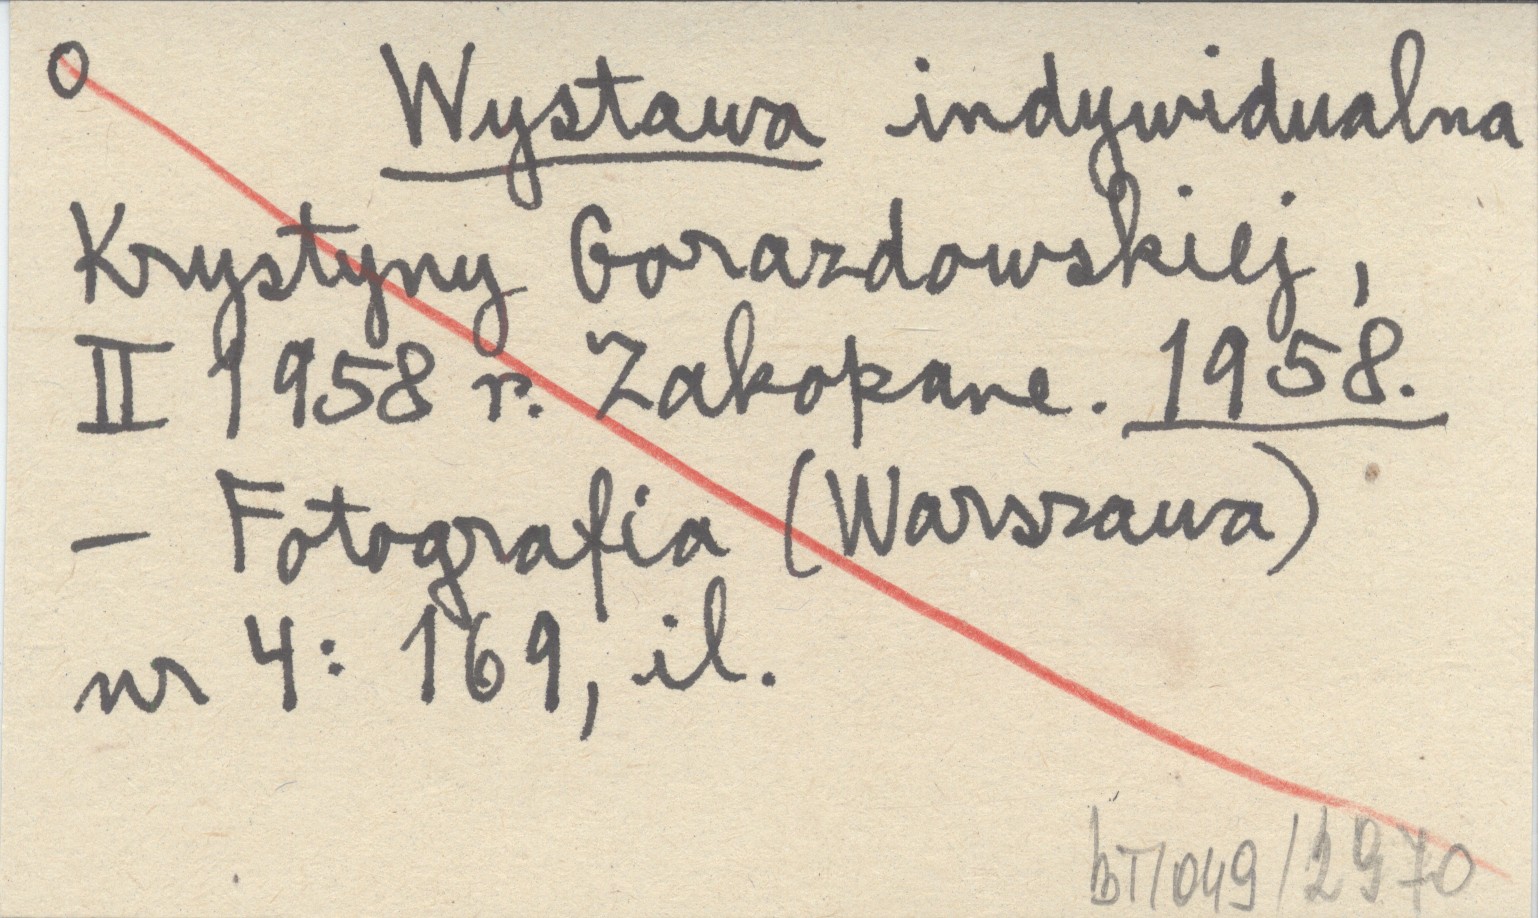 O Wystawa indywidualna
Krystyny Gorazdowskiej,
II 1958 r. Zakopane. 1958.
— Fotografia (Warszawa)
nr 4: 169, il.
bT/049/2970